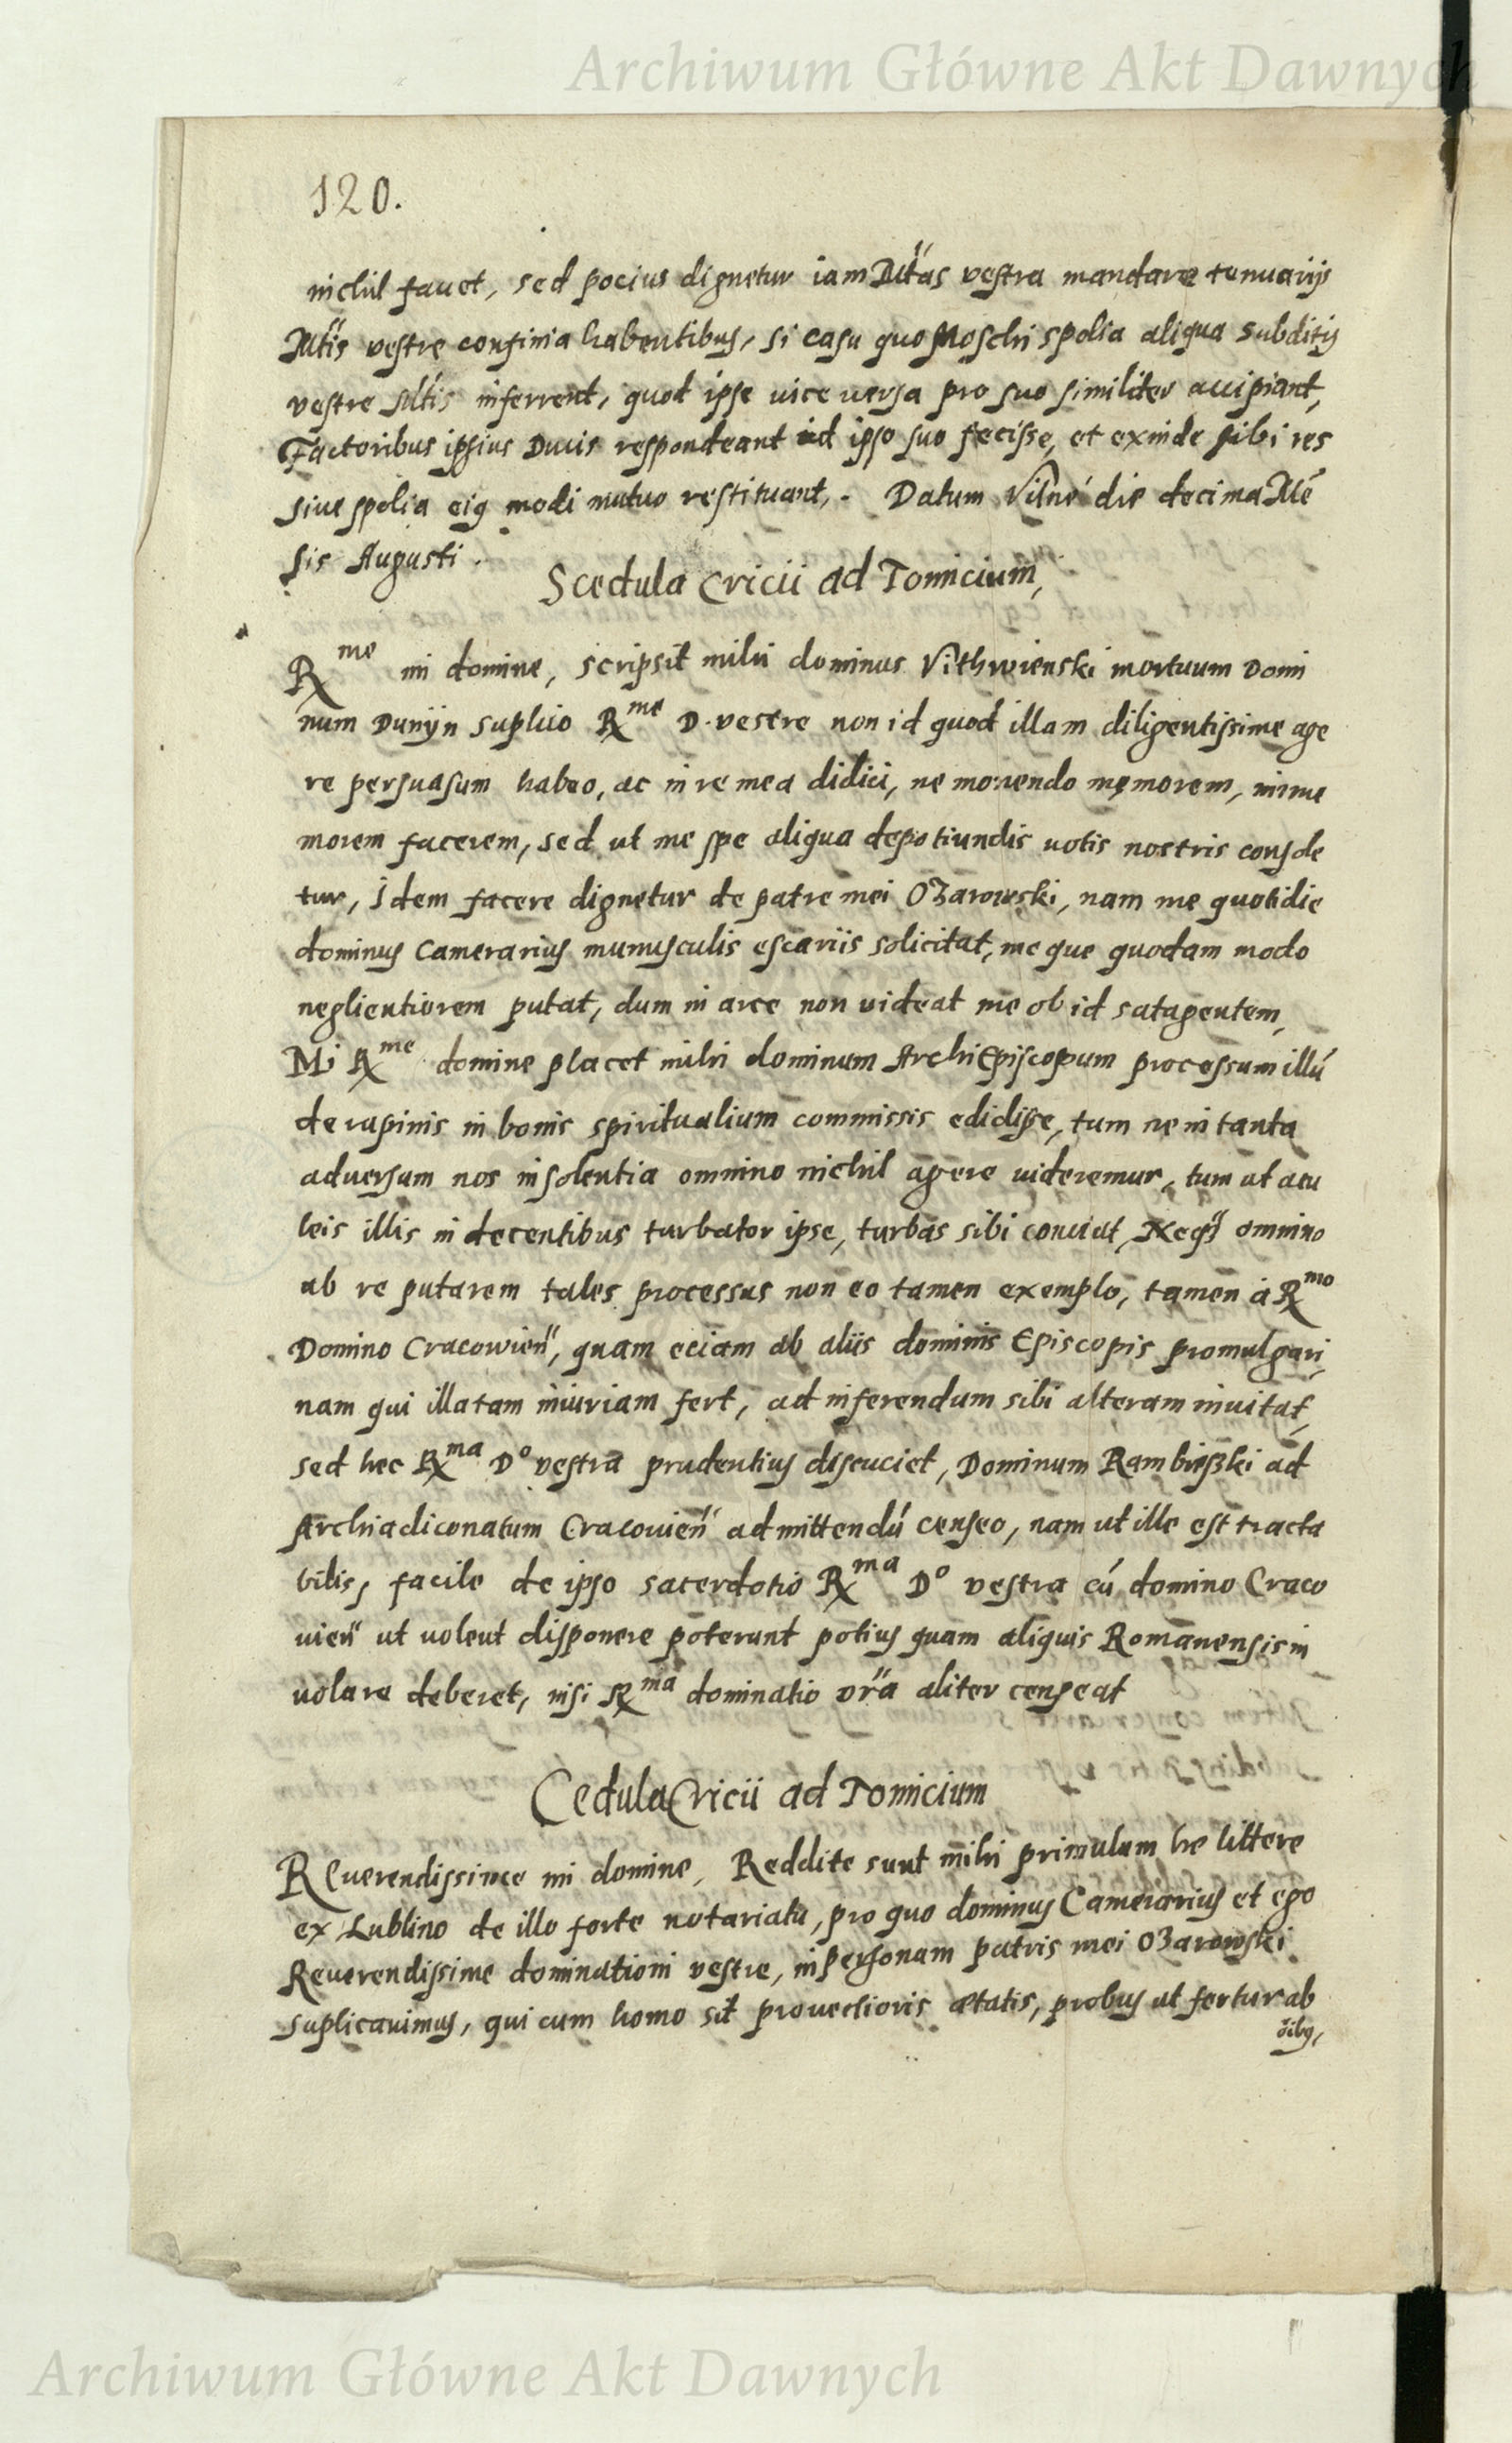 Archiwum Główne Akt Dawnych
120.
nichil fauet, sed pocius dignetur iam Mt̃as vestra mandare tenuariis
Mt̃is vestre confinia habentibus, si casu quo Moschi spolia aliqua subditis
vestre Mt̃is inferrent, quod ipse vice uersa pro suo similiter accipiant,
Factoribus ipsius Ducis respondeant id ipso suo fecisse, et exinde sibi res
siue spolia eiꝰ modi mutuo restituant. Datum Vilne die decima Mẽ
sis Augusti.
Scedula Cricii ad Tomicium,
Rme mi domine, scripsit mihi dominus Vithwienski mortuum Domi
num Dunijn suplico Rme D. vestre non id quod illam diligentissime age
re persuasum habeo, ac in re mea didici, ne monendo memorem, imme
morem facerem, sed ut me spe aliqua depotiundis uotis nostris console
tur, Idem facere dignetur de patre mei Ozarowski, nam me quotidie
dominus Camerarius munusculis escariis solicitat, me que quodam modo
neglientiorem putat, dum in arce non uideat me ob id satagentem,
Mi Rme domine placet mihi dominum ArchiEpiscopum processum illũ
de rapinis in bonis spiritualium commissis edidisse, tum ne in tanta
aduersum nos insolentia omnino nichil agere uideremur, tum ut acu
leis illis indecentibus turbator ipse, turbas sibi conciat, Neqꝫ omnino
ab re putarem tales processus non eo tamen exemplo, tamen à Rmo
Domino Cracowieñ, quam eciam ab aliis dominis Episcopis promulgari,
nam qui illatam iniuriam fert, ad inferendum sibi alteram inuitat,
sed hec Rma Do vestra prudentius discuciet, Dominum Rambieski ad
Archiadiconatum Cracouieñ admittendũ censeo, nam ut ille est tracta
bilis, facile de ipso sacerdotio Rma Do vestra cũ domino Craco
uieñ ut uolent disponere poterunt potius quam aliquis Romanensis in
uolare deberet, nisi Rma dominatio vr̃a aliter censeat
Cedula Cricii ad Tomicium
Reuerendissimee mi domine, Reddite sunt mihi primulum he littere
ex Lublino de illo forte notariatu, pro quo dominus Camerarius et ego
Reuerendissime dominationi vestre, in personam patris mei Ozarowski
suplicauimus, qui cum homo sit prouectioris ætatis, probus ut fertur ab
õibꝰ,
Archiwum Główne Akt Dawnych